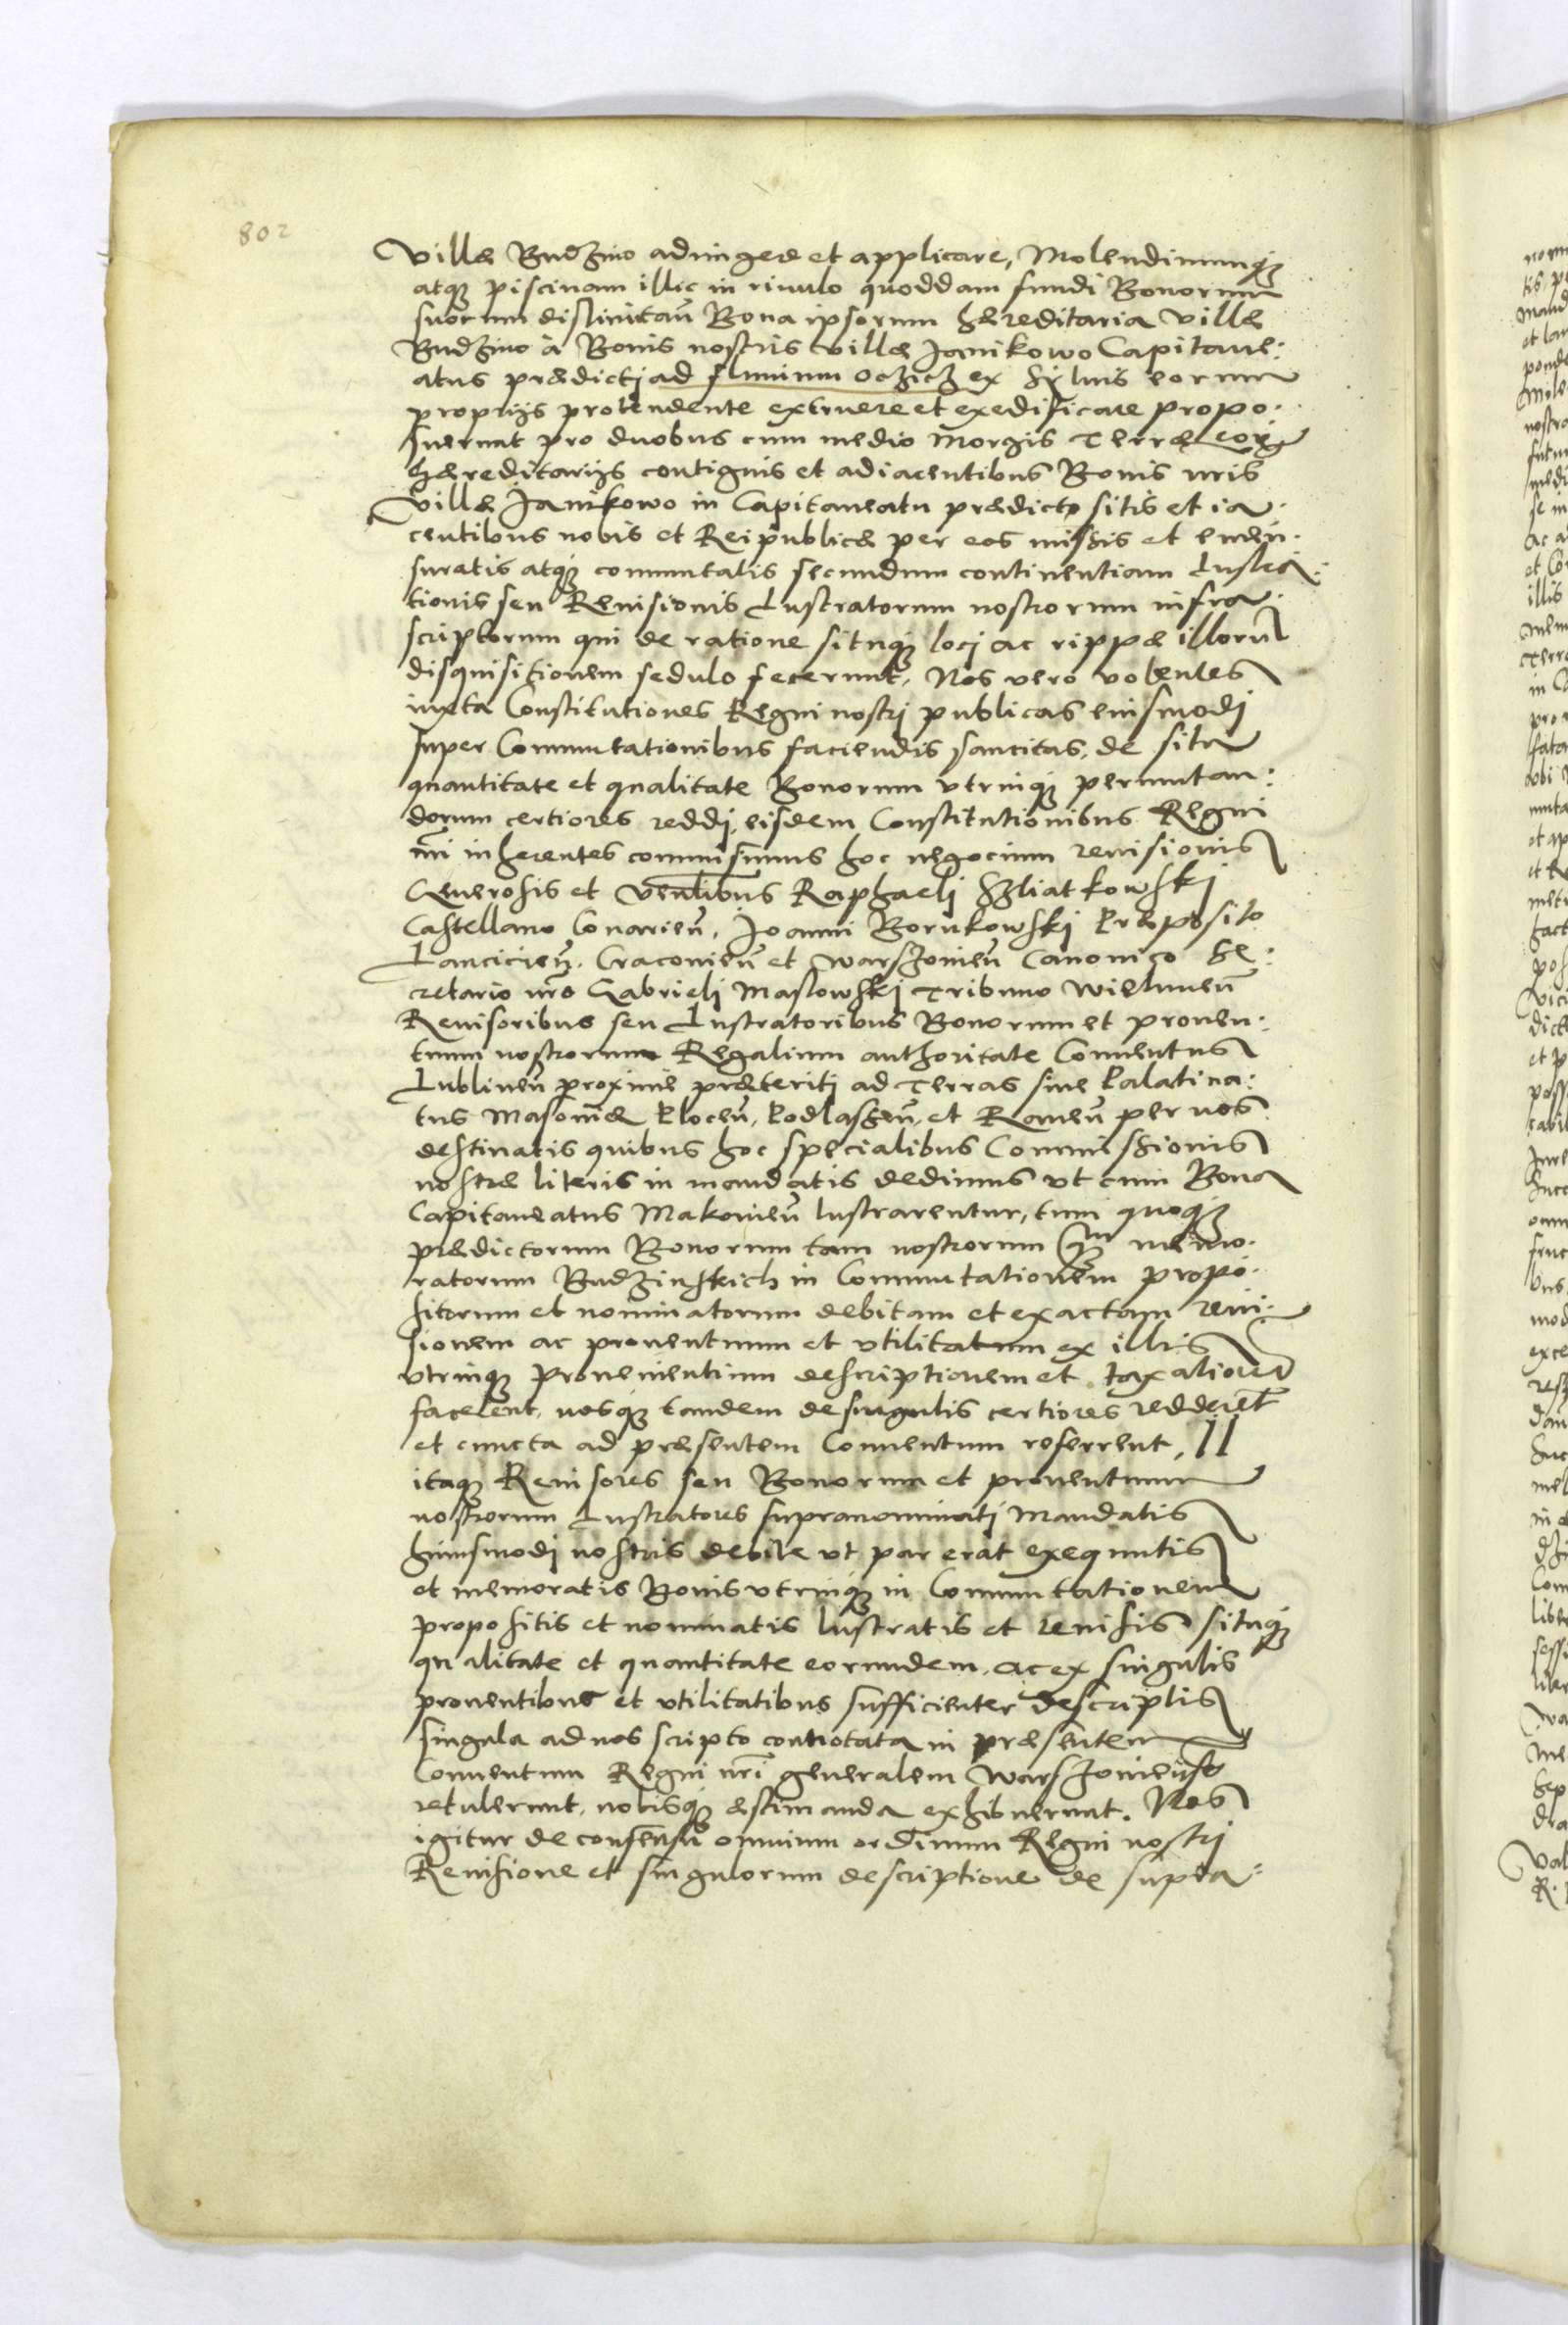 802
Villæ Budzino adiungere et applicare, Molendinumq3
atq3 piscinam illic in riuulo quoddam fundi Bonorum
suorum distinctaū Bona ipsorum hæreditaria Villæ
Budzino à Bonis nostris villæ Janikowo Capitane:
atus prædictj ad fluuium Oczicz ex syluis eorum
proprijs protendente extruere et exedificare propo:
suerunt pro duobus cum medio Morgis Terræ eorū
hæreditarijs contiguis et adiacentibus Bonis nris
Villæ Janikowo in Capitaneatu prædicto sitis et ia:
centibus nobis et Reipublicæ per eos missis et emen:
suratis atq3 commutatis secundum continentiam Lustra:
tionis seu Reuisionis Lustratorum nostrorum infra:
scriptorum qui de ratione situq3 locj ac rippæ illorū
disquisitionem sedulo fecerunt, Nos vero volentes
iuxta Constitutiones Regni nostrj publicas eiusmodj
super Commutationibus faciendis sancitas, de situ
quantitate et qualitate Bonorum vtrinq3 permutan:
dorum certiores reddj, eisdem Constitutionibus Regni
nri inherentes commisimus hoc negocium reuisionis
Generosis et Venlibus Raphaelj Szliatkowskj
Castellano Conarieñ, Joanni Borukowskj Præposito
Lancicieñ. Cracouieñ et Warszouieñ Canonico Se:
cretario nro Gabrielj Maslowskj Tribuno Wieluneñ
Reuisoribus seu Lustratoribus Bonorum et prouen:
tuum nostrorum Regalium authoritate Conuentus
Lublineñ proxime præteritj ad Terras siue Palatina:
tus Masouiæ Ploceñ, Podlassieñ, et Raueñ per nos
destinatis quibus hoc specialibus Commissionis
nostræ literis in mandatis dedimus vt cum Bona
Capitaneatus Makouieñ lustrarentur, tum quoq3
prædictorum Bonorum tam nostrorum qm memo:
ratorum Budzinskich in Commutationem propo:
sitorum et nominatorum debitam et exactam reui:
sionem ac prouentuum et vtilitatum ex illis
vtrinq3 Prouenientium descriptionem et taxationem
facerent, nosq3 tandem de singulis certiores redderēt
et cuncta ad præsentem Conuentum referrent, Ii
itaq3 Reuisores seu Bonorum et prouentuum
nostrorum Lustratores supranominatj Mandatis
huiusmodj nostris debite vt par erat exequutis
et memoratis Bonis vtrinq3 in Commutationem
propositis et nominatis lustratis et reuisis situq3
qualitate et quantitate eorumdem, ac ex singulis
prouentibus et vtilitatibus sufficienter descriptis
singula ad nos scripto connotata in præsentem
Conuentum Regni nri generalem Warszouieñs
retulerunt, nobisq3 æstimanda exhibuerunt. Nos
igitur de consensu omnium ordinum Regni nostrj
Reuisione et singulorum descriptione de supra: